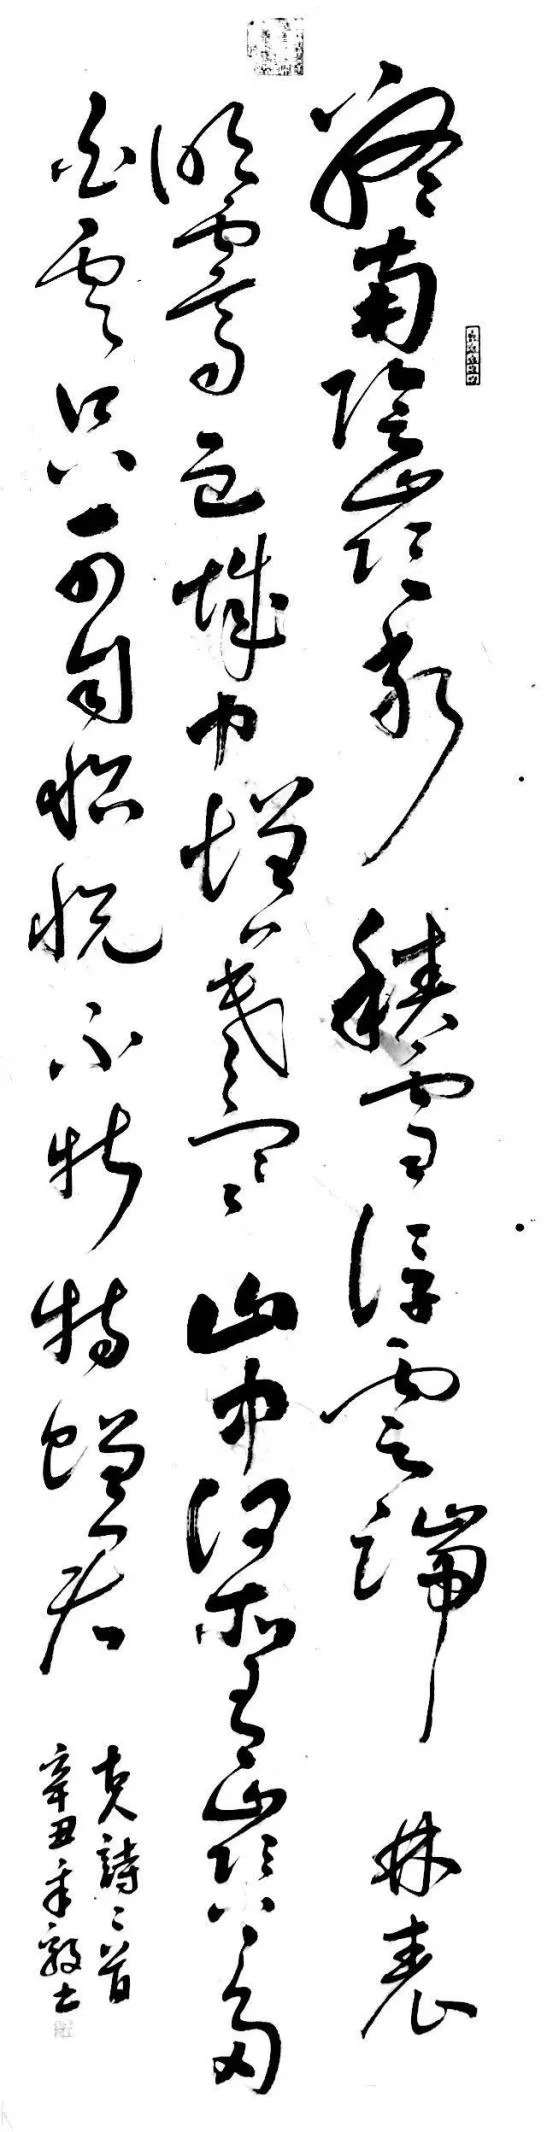 終南陰嶺秀積雪浮雲端林表
明霽色城中增暮寒山中何所有嶺上多
白雲只可自怡悅不堪持贈君
詩二首
辛丑年